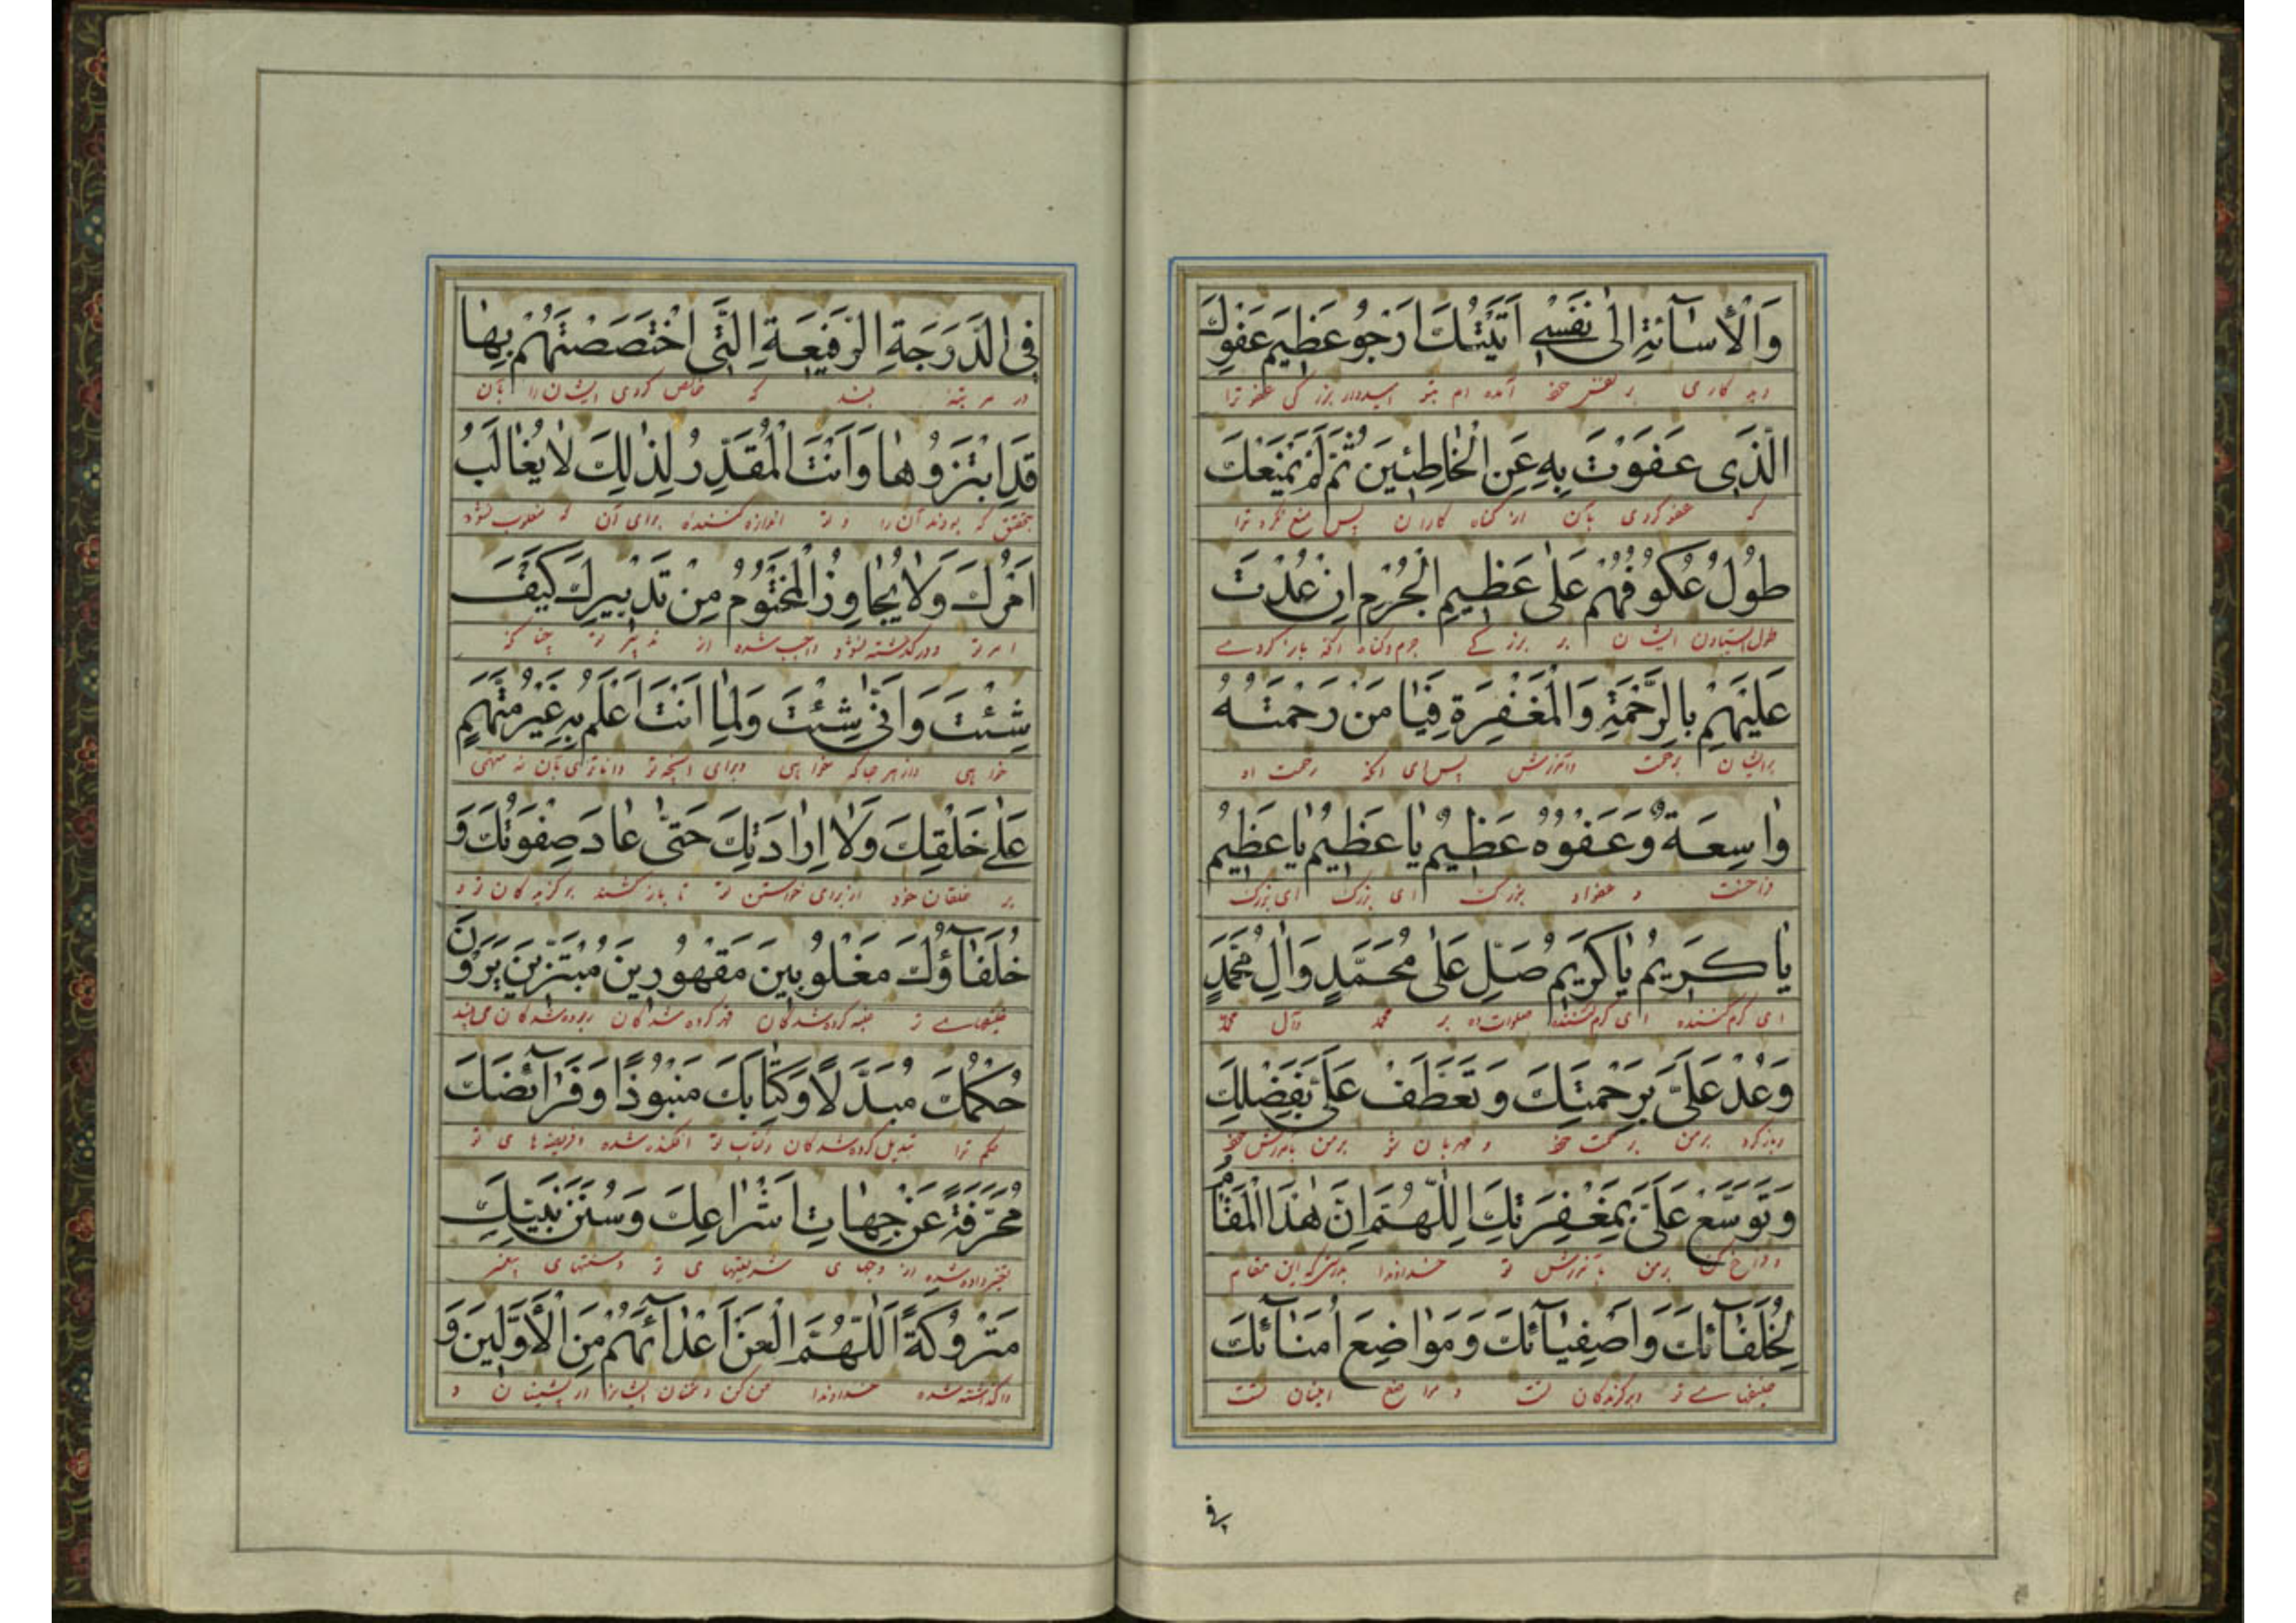 وَالْأِسٰآئَةِ اِلىٰ نَفْسٖى اَتَيْتُكَ اَرْجُو عَظِيمَ عَفْوِكَ
آمده ام بتو امیدوار بزرگی عفو ترا
الَّذٖى عَفَوْتَ بِهٖ عَنِ الْخٰاطِئينَ ثُمَّ لَمْ يَمْنَعْكَ
که عفو کردی بآن از گناه کاران پس منع نکرد ترا
طُولُ عُكُوفِهِمْ عَلىٰ عَظيمِ الْجُرْمِ اِنْ عُدْتَ
طول ایستادن ایشان بر بزرگے جرم و گناه انکه باز کردے
عَلَيْهِمْ بِالرَّحْمَةِ وَالْمَغْفِرَةِ فَيٰا مَنْ رَحْمَتُهُ
برایشان برحمت وآمرزش پس ای انکه رحمت او
وٰاسِعَةٌ وَعَفْوُهُ عَظيمٌ يٰا عَظيمُ يٰا عَظيمُ
و عفو او بزرگ ای بزرگ ای بزرگ
يٰا كَريمُ يٰا كَريمُ صَلِّ عَلىٰ مُحَمَّدٍ وَاٰلِ مُحَمَّدٍ
ای کرم کننده ای کرم کننده صلوات ده بر محمد وآل محمد
وَعُدْ عَلَيَّ بِرَحْمَتِكَ وَتَعَطَّفْ عَلَيَّ بِفَضْلِكَ
وبازگرد برمن برحمت خود و مهربان شو برمن
وَتَوَسَّعْ عَلَيَّ بِمَغْفِرَتِكَ اَللّٰهُمَّ اِنَّ هٰذَا الْمَقٰامَ
و فراخ کن برمن بآمرزش تو خداوندا بدرستی که این مقام
لِخُلَفٰآئِكَ وَاَصْفِيٰآئِكَ وَمَوٰاضِعَ اُمَنٰآئِكَ
خلیفهاے تو وبرگزیدکان تست و مواضع امینان تست
فی
فِى الدَّرَجَةِ الرَّفيعَةِ الَّتى اخْتَصَصْتَهُمْ بِهٰا
در مرتبهٔ بلند که خاص کردی ایشان را بآن
قَدِ ابْتَزُّوهٰا وَاَنْتَ الْمُقَدِّرُ لِذٰلِكَ لٰا يُغٰالَبُ
بتحقیق که بودند آن را و تو اندازه کننده برای آن که مغلوب نشود
اَمْرُكَ وَلٰا يُجٰاوِزُ الْمَحْتُومُ مِنْ تَدْبيرِكَ كَيْفَ
امر تو ودر گذشته نشود واجب شده از تدبیر تو چنانکه
شِئْتَ وَاَنّٰى شِئْتَ وَلِمٰا اَنْتَ اَعْلَمُ بِهٖ غَيْرُ مُتَّهَمٍ
خواهی واز هر جا که خواهی وبرای انچه تو داناتری بآن نه متهمی
عَلىٰ خَلْقِكَ وَلٰا اِرٰادَتِكَ حَتّٰى عٰادَ صِفْوَتُكَ وَ
بر خلقان خود از برای خواستن تو تا باز کشتند برگزیدکان تو و
خُلَفٰآؤُكَ مَغْلُوبينَ مَقْهُورينَ مُبْتَزّينَ يَرَوْنَ
خلیفهاے تو غلبه کرده شدکان قهر کرده شدکان ربوده شدکان می بینند
حُكْمَكَ مُبَدَّلًا وَكِتٰابَكَ مَنْبُوذًا وَفَرٰآئِضَكَ
حکم ترا تبدیل کرده شدکان وکتاب تو افکنده شده وفریضه های تو
مُحَرَّفَةً عَنْ جِهٰاتِ اَشْرٰاعِكَ وَسُنَنَ نَبِيِّكَ
تغییر داده شده از وجهای شریعتهای تو وسنتهای پیغمبر
مَتْرُوكَةً اَللّٰهُمَّ الْعَنْ اَعْدٰآئَهُمْ مِنَ الْأَوَّلينَ وَ
واگذاشته شده خداوندا لعن کن دشمنان ایشانرا از پیشینان و